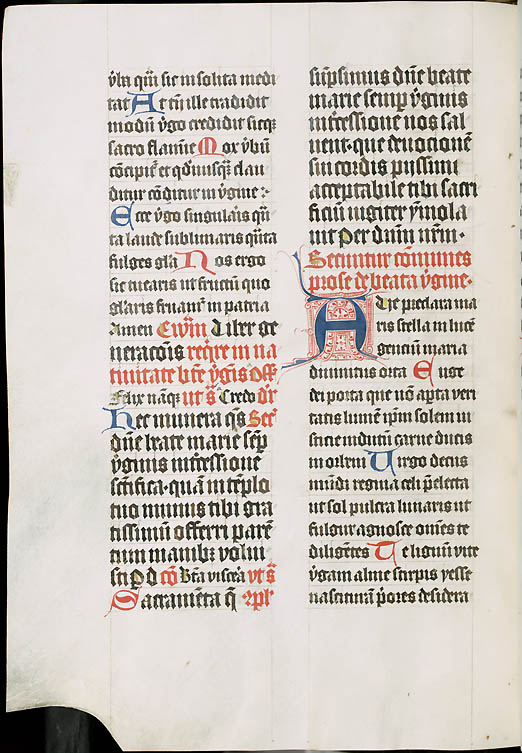 v̄bū qm̄ sic insolita medi
tat At cū ille tradidit
modū v̄go credidit sicqꝫ
sacro flamīe Mox v̄bū
cōcipit̄ et qd̄ nusqꝫ clau
ditur cōditur in v̄gine :
Ecce v̄go singularis qn̄
ta laude sublimaris q̄nta
fulges gl̄a Nos ergo
sic tuearis ut fructū quo
glaris fruamr̄ in patria
Amen Ewm̄ Liber ge
neracōis req̄re in na
tiuitate bt̄e v̄gīs Off̄
Felix nāqꝫ ut s̄ Credo dr̄
Hec munera q̄s Sec̄
dn̄e beate marie sēp
v̄ginis int̄cessione
sc̄ifica quā in tēplo
tuo munus tibi gra
tissimū offerri parē
tum manibꝫ volui
sti P d cō Bt̄a viscēa vt s̄
Sacramēta q̄ rpl̄
sūpsimus dn̄e beate
marie semp̄ v̄ginis
int̄cessione nos sal
uent que deuocionē
sui cordis piissimi
acceptabile tibi sacri
ficiū iugiter ymola
uit Per dnm̄ nr̄m
Secuntur cōmunes
prose de beata v̄gine
Aue preclara ma
ris stella in lucē
gentiū maria
diuinitus orta Euge
dei porta que nō apta veri
tatis lumē ip̄m solem iu
sticie indutū carne ducis
in orbem Virgo decus
mūdi regina celi p̄electa
ut sol pulcra lunaris ut
fulgor agnosce om̄es te
diligētes Te lignum vite
v̄gam alme stirpis yesse
nasciturā p̄ores desidera